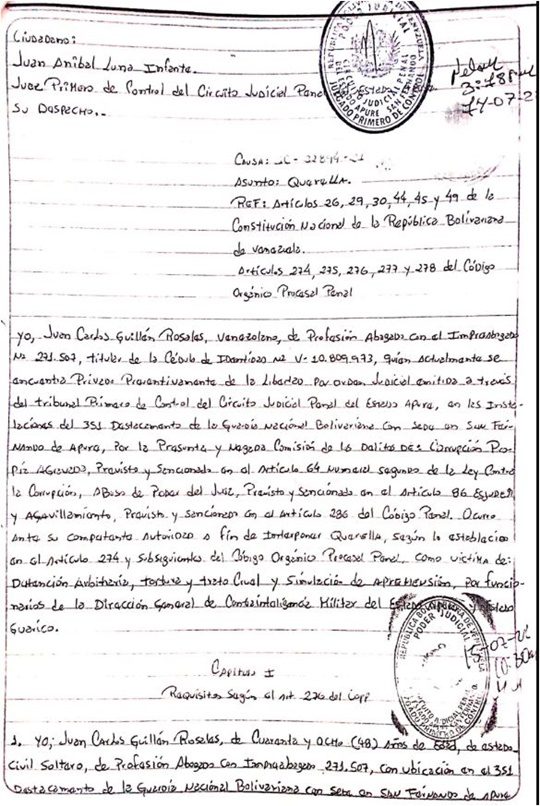 Ciudadano:
Juan Anibal Luna Infante.
Juez Primero de Control del Circuito Judicial Penal
Su Despacho.-
REPUBLICA BOLIVARIANA DE VENEZUELA
PODER JUDICIAL
CIRCUITO JUDICIAL PENAL
ESTADO APURE SAN FERNANDO
JUZGADO PRIMERO DE CONTROL
3:18 pm
14-07-2
Causa:
Asunto: Querella.
REF: Articulos 26, 29, 30, 44, 45 y 49 de la
Constitución Nacional de la República Bolivariana
de Venezuela.
Articulos 274, 275, 276, 277 y 278 del Código
Orgánico Procesal Penal
Yo, Juan Carlos Guillén Rosales, Venezolano, de Profesión Abogado con el Impreabogado
Nº 271.507, titular de la Cédula de Identidad Nº V-10.809.973, quien actualmente se
encuentra Privado Preventivamente de la Libertad por orden Judicial emitida a través
del tribunal Primero de Control del Circuito Judicial Penal del Estado Apure, en las Insta-
laciones del 351 Destacamento de la Guardia Nacional Bolivariana con sede en San Fer-
nando de Apure, Por la Presunta y Negada Comisión de los Delitos de: Corrupción Pro-
pia Agravada, Previsto y Sancionado en el Artículo 64 Numeral segundo de la Ley Contra
la Corrupción, Abuso de Poder del Juez, Previsto y sancionado en el Artículo 86 Ejusdem
y Agavillamiento, Previsto y sancionado en el Artículo 286 del Código Penal. Ocurro
Ante su competente Autoridad a fin de Interponer Querella, según lo establecido
en el Artículo 274 y Subsiguientes del Código Orgánico Procesal Penal, como victima de:
Detención Arbitraria, Tortura y trato Cruel y Simulación de Aprehensión, Por funcio-
narios de la Dirección General de Contrainteligencia Militar del Estado
Guarico.
REPUBLICA BOLIVARIANA DE VENEZUELA
PODER JUDICIAL
15-07-22
10:30am
Capitulo I
Requisitos Según el Art 276 del Copp
1. Yo, Juan Carlos Guillén Rosales, de Cuarenta y Ocho (48) Años de Edad, de estado
Civil Soltero, de Profesión Abogado con Impreabogado 271.507, con ubicación en el 351
Destacamento de la Guardia Nacional Bolivariana con sede en San Fernando de Apure